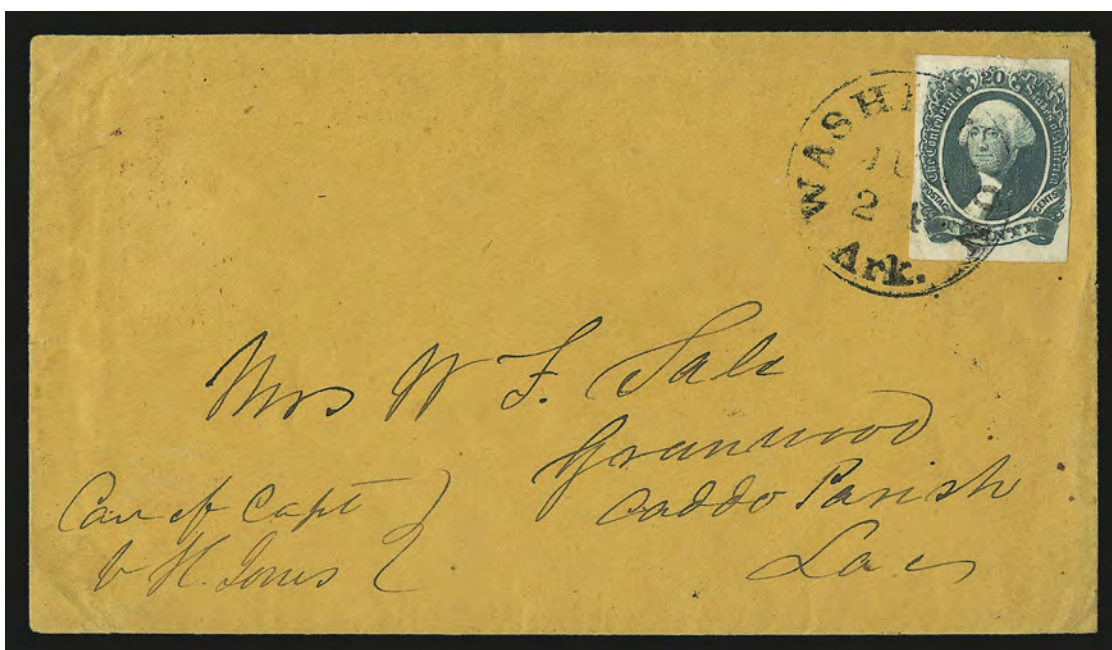 WASHI
2
Ark.
20
The Confederate States of America
POSTAGE CENTS
TWENTY
Mrs W F. Sale
Greenwood
Caddo Parish
La
Care of Capt
H. Jones